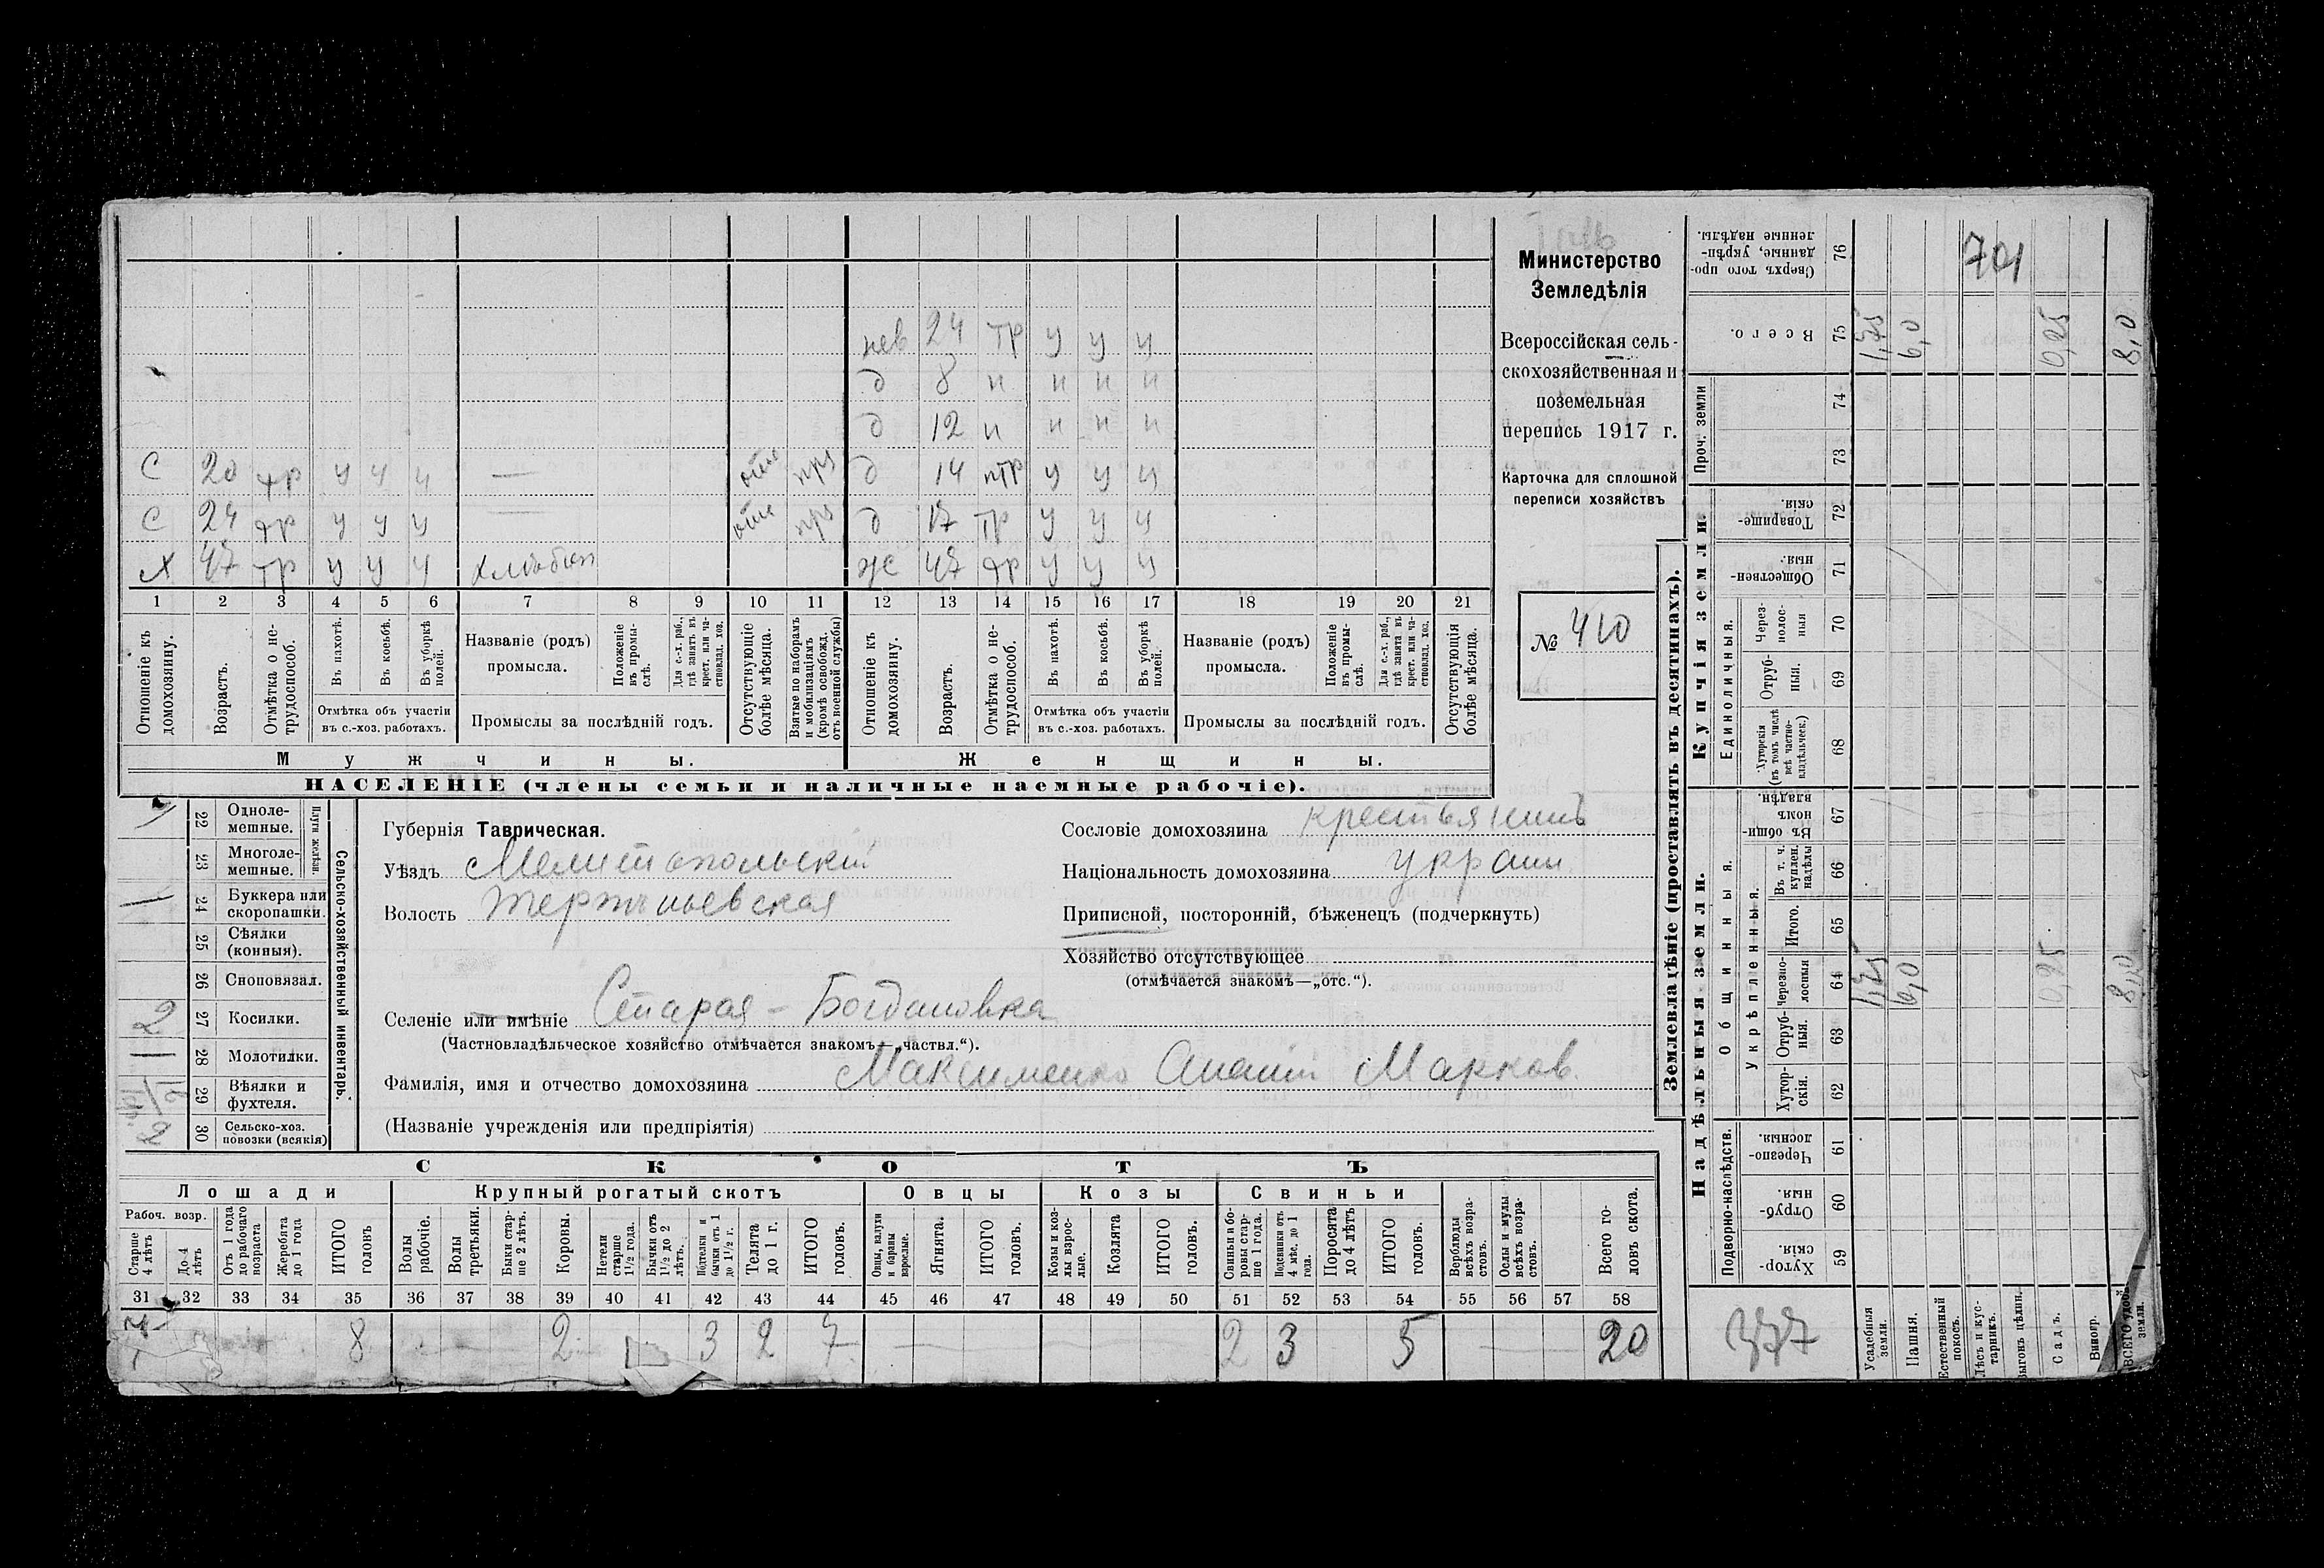 701
Министерство
Земледѣлія
Всероссійская сель-
скохозяйственная и
поземельная
перепись 1917 г.
Карточка для сплошной
переписи хозяйствъ
№ 410
нев 24 тр у у у
д 8 н н н н
д 12 н н н н
С 20 тр у у у — д 14 птр у у у
С 24 тр у у у — д 17 тр у у у
Х 47 тр у у у ж 47 тр у у у
1 2 3 4 5 6 7 8 9 10 11 12 13 14 15 16 17 18 19 20 21
Отношеніе къ домохозяину.
Возрастъ.
Отмѣтка о не-трудоспособ.
Въ пахотѣ.
Въ косьбѣ.
Въ уборкѣ полей.
Отмѣтка объ участіи
въ с.-хоз. работахъ.
Названіе (родъ)
промысла.
Положеніе въ промы-слѣ.
Для с.-х. раб., гдѣ занятъ въ крест. или ча-стновлад. хоз.
Промыслы за послѣдній годъ.
Отсутствующіе болѣе мѣсяца.
Взятые по наборамъ и мобилизаціямъ (кромѣ освобожд. отъ военной службы)
Отношеніе къ домохозяину.
Возрастъ.
Отмѣтка о не-трудоспособ.
Въ пахотѣ.
Въ косьбѣ.
Въ уборкѣ полей.
Отмѣтка объ участіи
въ с.-хоз. работахъ.
Названіе (родъ)
промысла.
Положеніе въ промы-слѣ.
Для с.-х. раб., гдѣ занята въ крест. или ча-стновлад. хоз.
Промыслы за послѣдній годъ.
Отсутствующія болѣе мѣсяца.
Мужчины. Женщины.
НАСЕЛЕНІЕ (члены семьи и наличные наемные рабочіе).
Сельско-хозяйственный инвентарь.
Плуги желѣзн.
22 Одноле-мешные.
23 Многоле-мешные.
1 24 Буккера или скоропашки.
25 Сѣялки (конныя).
26 Сноповязал.
2 27 Косилки.
1 28 Молотилки.
29 Вѣялки и фухтеля.
2 30 Сельско-хоз. повозки (всякія)
Губернія Таврическая.
Уѣздъ Мелитопольскій
Волость Терпѣньевская
Селеніе или имѣніе Старая - Богдановка
(Частновладѣльческое хозяйство отмѣчается знакомъ—„частвл.“).
Фамилія, имя и отчество домохозяина Максименко Ананій Марков.
(Названіе учрежденія или предпріятія)
Сословіе домохозяина крестьянинъ
Національность домохозяина украин.
Приписной, посторонній, бѣженецъ (подчеркнуть)
Хозяйство отсутствующее
(отмѣчается знакомъ—„отс.“).
СКОТЪ
Лошади Крупный рогатый скотъ Овцы Козы Свиньи
Рабоч. возр.
Старше 4 лѣтъ
До 4 лѣтъ
Отъ 1 года до рабочаго возраста
Жеребята до 1 года
ИТОГО головъ
Волы рабочіе.
Волы третьяки.
Быки стар-ше 2 лѣтъ.
Коровы.
Нетели старше 1 1/2 года.
Бычки отъ 1 1/2 до 2 лѣтъ.
Подтелки и бычки отъ 1 до 1 1/2 г.
Телята до 1 г.
ИТОГО головъ.
Овцы, валухи и бараны взрослые.
Ягнята.
ИТОГО головъ.
Козы и коз-лы взрос-лые.
Козлята
ИТОГО головъ.
Свиньи и бо-ровы стар-ше 1 года.
Подсвинки отъ 4 мѣс. до 1 года.
Поросята до 4 лѣтъ
ИТОГО головъ.
Верблюды всѣхъ возра-стовъ.
Ослы и мулы всѣхъ возра-стовъ.
Всего го-ловъ скота.
31 32 33 34 35 36 37 38 39 40 41 42 43 44 45 46 47 48 49 50 51 52 53 54 55 56 57 58
8 2 3 2 7 2 3 5 20
Землевладѣніе (проставлять въ десятинахъ).
Надѣльныя земли. Купчія земли.
Подворно-наслѣдств.
Общинныя.
Укрѣпленныя.
Единоличныя.
Проч. земли
59 Хутор-скія.
60 Отруб-ныя.
61 Черезпо-лосныя.
62 Хутор-скія.
63 Отруб-ныя.
64 Черезпо-лосныя 1,75 6,0 0,25 8,0
65 Итого.
66 Въ т. ч. куплен. надѣлы
67 Въ общи-номъ владѣн.
68 Хуторскія (въ томъ числѣ всѣ частно-владѣльческ.)
69 Отруб-ныя.
70 Через-полос-ныя
71 Обществен-ныя.
72 Товарище-скія.
73
74
75 Всего. 1,75 6,0 0,25 8,0
76 Сверхъ того про-данные, укрѣп-ленные надѣлы.
377
Усадебныя земли.
Пашня.
Естественный покосъ.
Лѣсъ и кус-тарникъ.
Выгонъ цѣлин.
Садъ.
Виногр.
ВСЕГО удоб. земли.